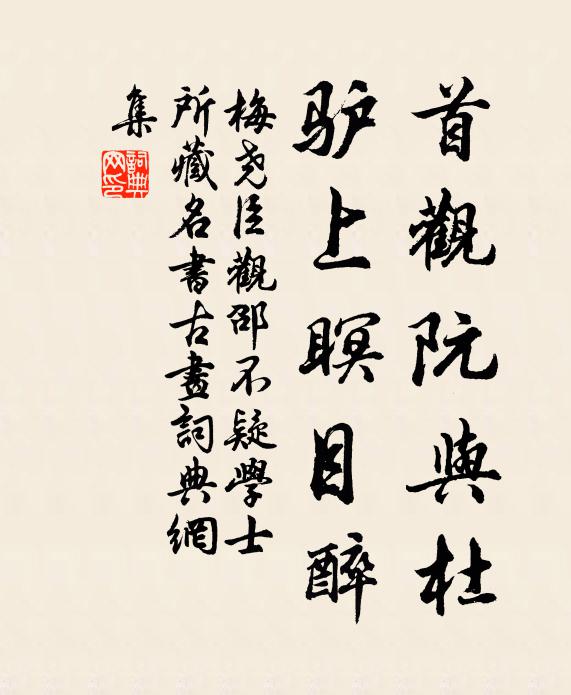 首觀阮與杜
驴上瞑目醉
梅尧臣觀邵不疑學士
所藏名書古畫詞典網
集
詞典
网印